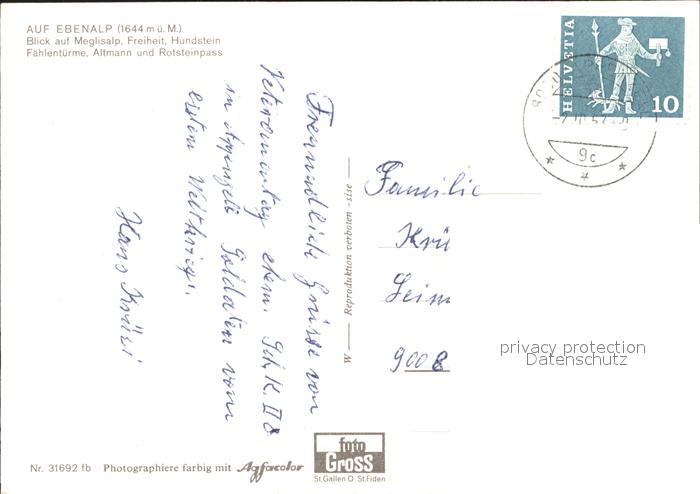 AUF EBENALP (1644 m ü. M.)
Blick auf Meglisalp, Freiheit, Hundstein
Fählentürme, Altmann und Rotsteinpass
HELVETIA
10
9c
Freundlich Grüsse von
Veteranentag ehem. Sch. K. II 8
in Appenzell Soldaten vom
ersten Weltkrieg.
Hans Krüsi
M — Reproduktion verboten - sise —
Familie
Krü
Leim
9008
privacy protection
Datenschutz
Nr. 31692 fb Photographiere farbig mit Agfacolor
foto
GROSS
St.Gallen O St.Fiden